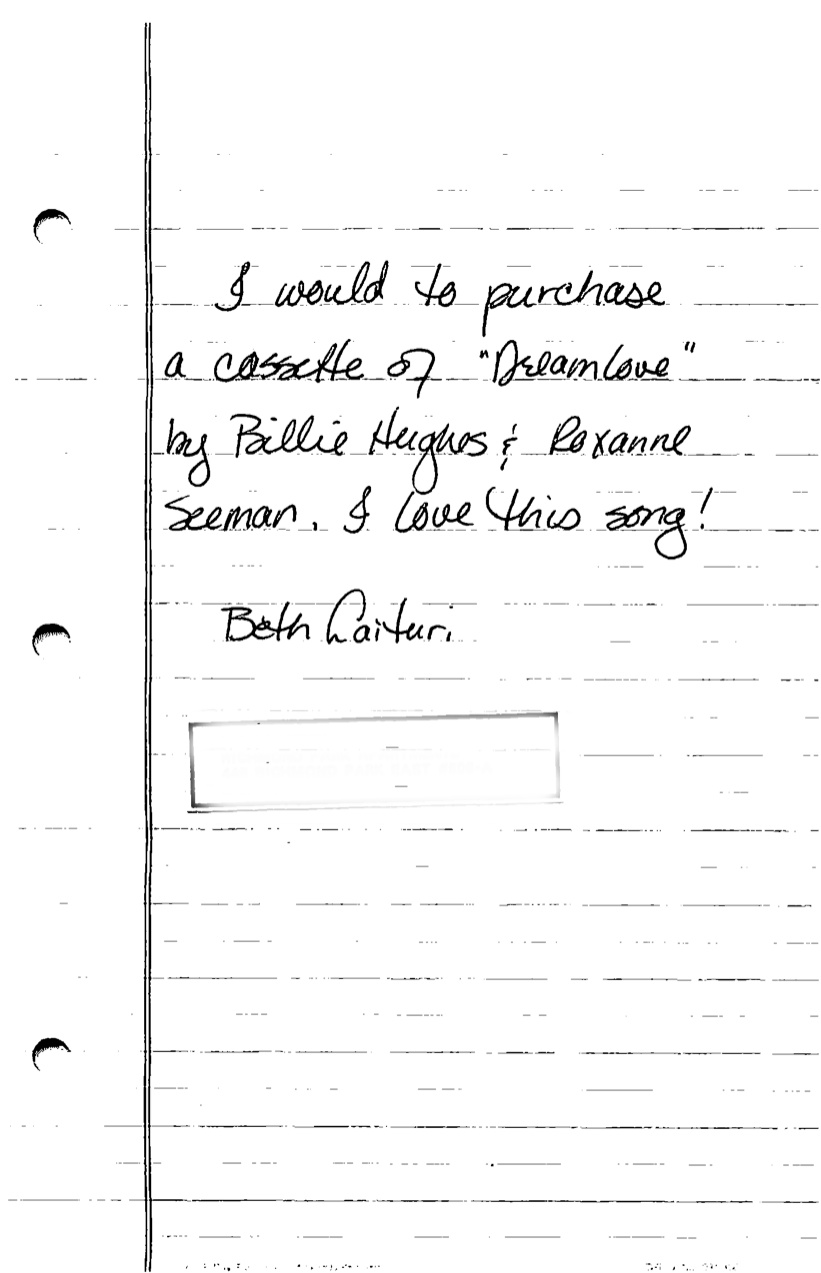 I would to purchase
a cassette of "Dreamlove"
by Billie Hughes & Roxanne
Seeman. I love this song!
Beth